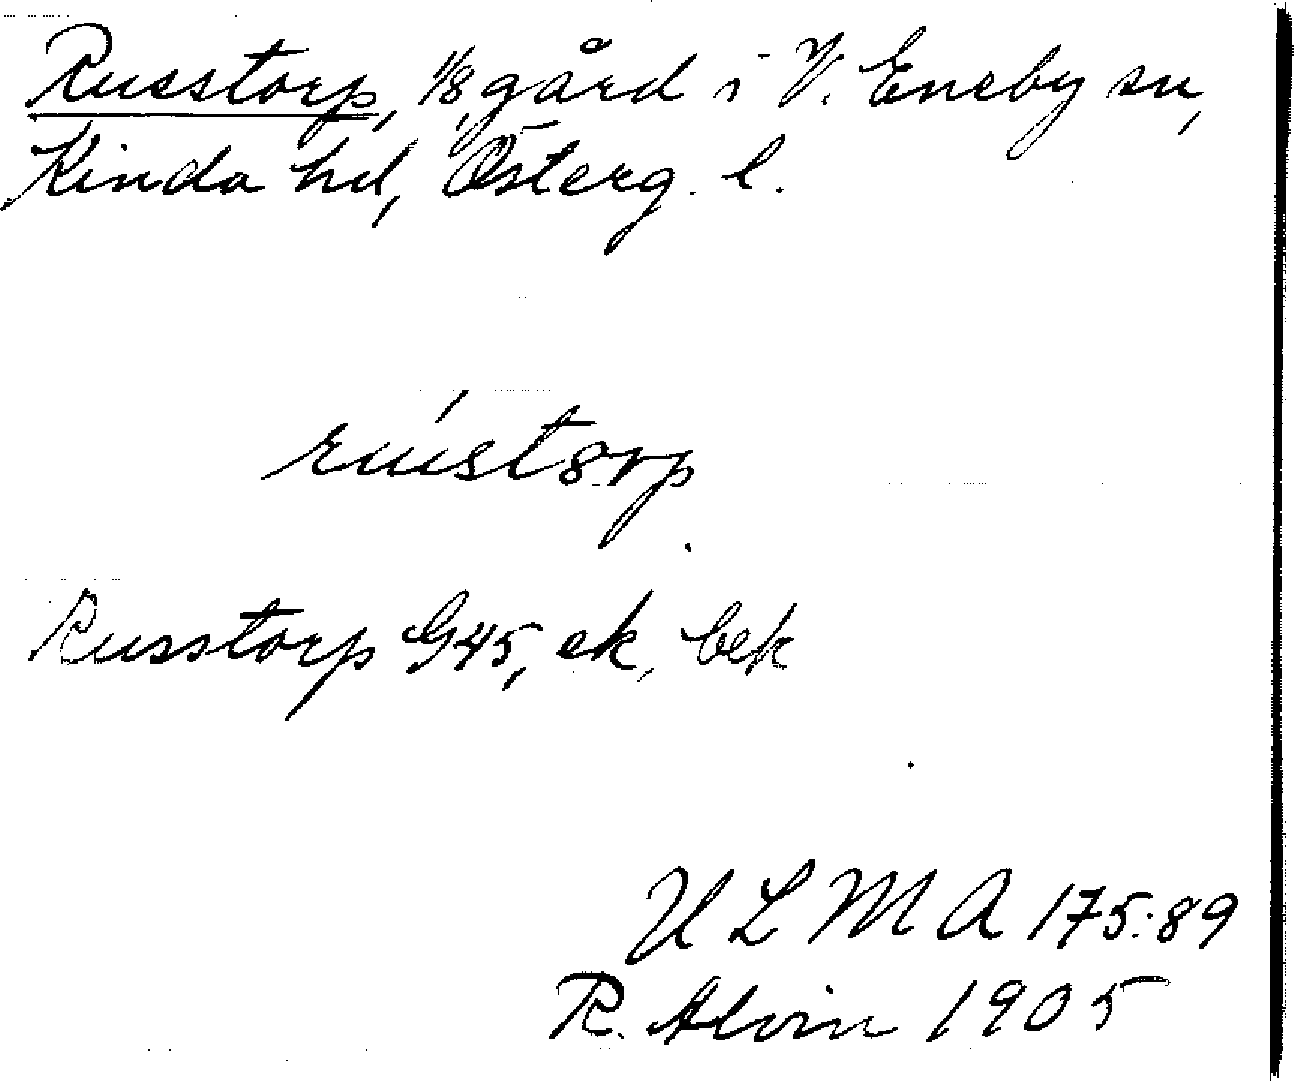 Russtorp, 1/8 gård i V. Eneby sn,
Kinda hd, Österg. l.
Russtorp G45, ek, bek
ULMA 175:89
R. Alvin 1905